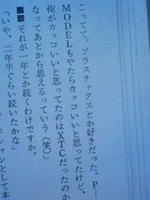 こってて。プラスチックスとか好きだった。P-
MODELもやたらカッコいいと思ってたけど、
俺がカッコいいと思ってたのはXTCだったのか
なってあとから思えるっていう（笑）」
■■それが一年とか続くわけですか。
「いや、二年半ぐらい続いたかな」
ションとして本